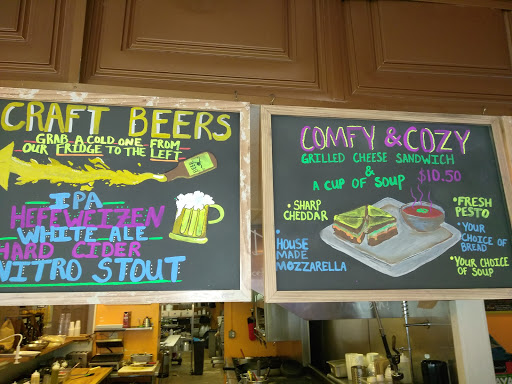 CRAFT BEERS
GRAB A COLD ONE FROM
OUR FRIDGE TO THE LEFT
IPA
HEFEWEIZEN
WHITE ALE
HARD CIDER
NITRO STOUT
COMFY & COZY
GRILLED CHEESE SANDWICH
&
A CUP OF SOUP $10.50
• SHARP
CHEDDAR
• HOUSE
MADE
MOZZARELLA
• FRESH
PESTO
• YOUR
CHOICE OF
BREAD
• YOUR CHOICE
OF SOUP